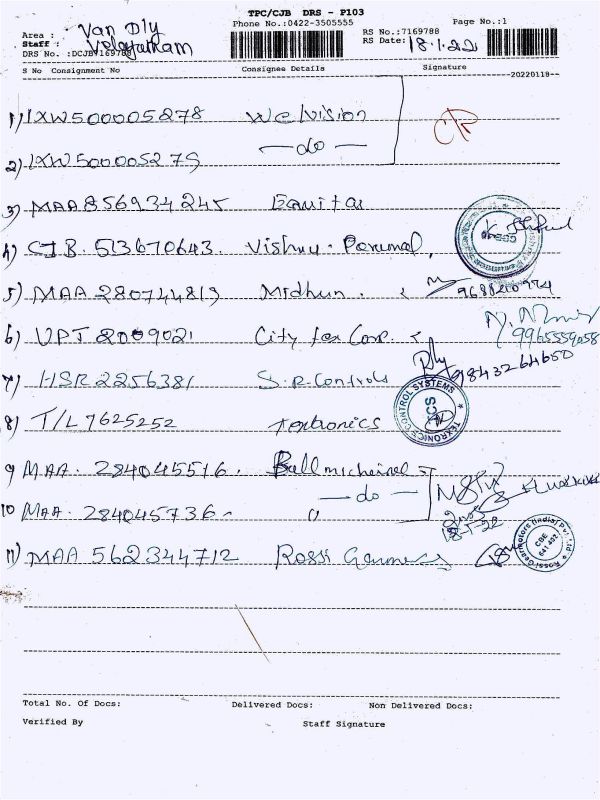 TPC/CJB DRS - P103
Phone No.:0422-3505555
Page No.:1
Area : Van Dly
Staff : Velayutham
DRS No. :DCJBV169788
RS No.:7169788
RS Date: 18.1.22
S No Consignment No Consignee Details Signature
20220118
1) IXW500005278 Welvision
2) IXW500005279 — do —
3) MAA856934245 Equitas
4) CJB. 513670643. Vishnu. Perumal,
5) MAA 280744819 Midhun.
9688210974
6) VPT 2009021 City fox Corp.
9965559058
7) HSR 2256381 S.R. Controls
9843264650
8) T/L 7625252 Textronics
TEXTRONICS CONTROL SYSTEMS
TCS
9 MAA. 284045516. Ball micheinel
— do —
10 MAA. 284045736 "
18-1-22
11) MAA 562344712 Rossi Gearmors
Rossi Gearmotors (India) Pvt. Ltd
CBE
641 402
Total No. Of Docs: Delivered Docs: Non Delivered Docs:
Verified By Staff Signature